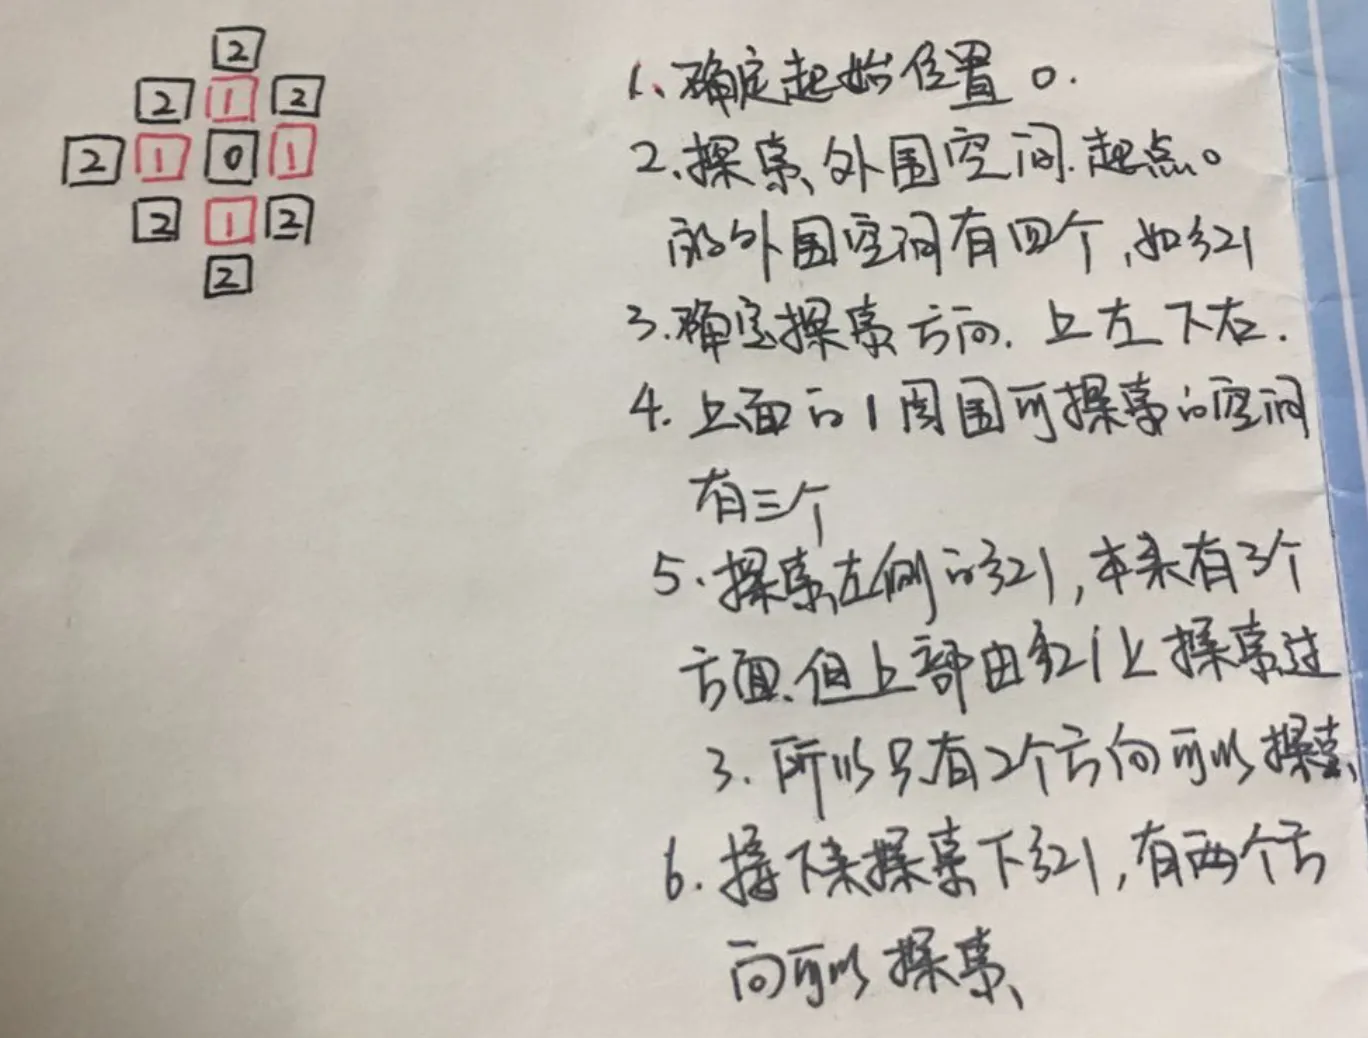 2
2 1 2
2 1 0 1
2 1 2
2
1、确定起始位置0.
2、探索外围空间.起点0
的外围空间有四个,如红1
3.确定探索方向.上左下右.
4.上面的1周围可探索的空间
有三个
5.探索左侧的红1,本来有3个
方面.但上部由红1上探索过
3.所以只有2个方向可以探索
6.接下来探索下红1,有两个方
向可以探索